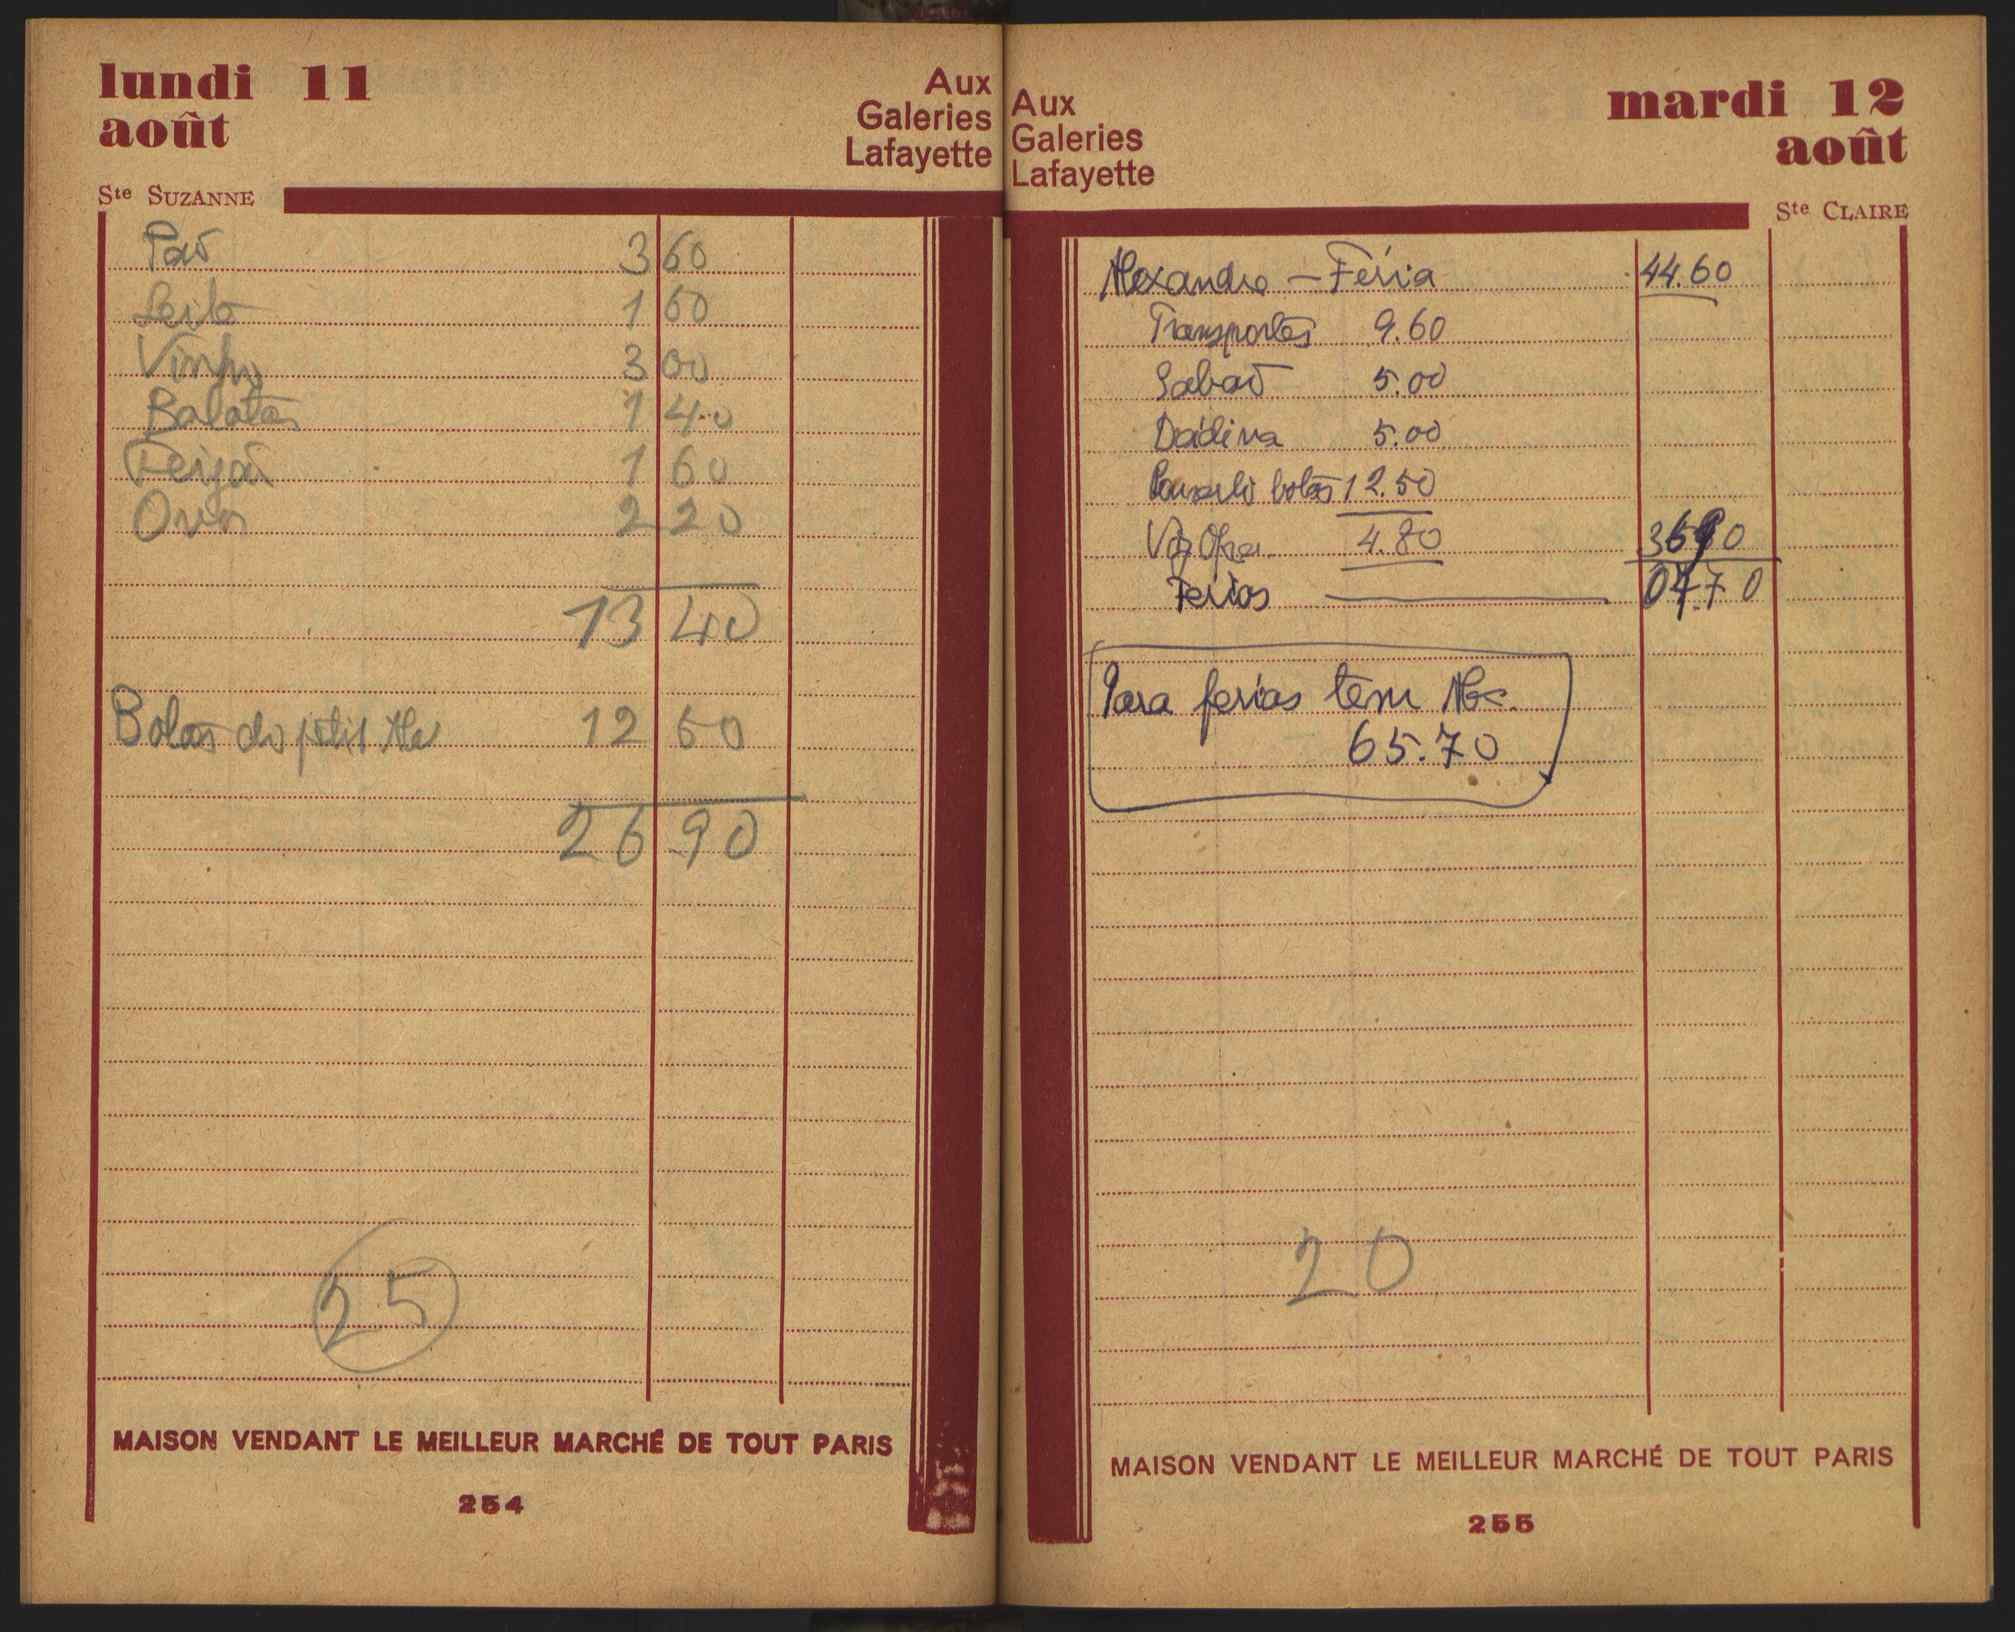 lundi 11
août
Aux
Galeries
Lafayette
Ste SUZANNE
Pão 3 60
Leite 1 60
Vinho 3 00
Batatas 1 40
Feijão 1 60
Ovos 2 20
13 40
Botas do petit Alex 12 60
26 90
25
MAISON VENDANT LE MEILLEUR MARCHÉ DE TOUT PARIS
254
Aux
Galeries
Lafayette
mardi 12
août
Ste CLAIRE
Alexandre — Féria 44.60
Transportes 9.60
Sabão 5.00
Dádiva 5.00
botas 12.50
4.80 3690
Ferias 0770
Para ferias tem Alex.
65.70
20
MAISON VENDANT LE MEILLEUR MARCHÉ DE TOUT PARIS
255